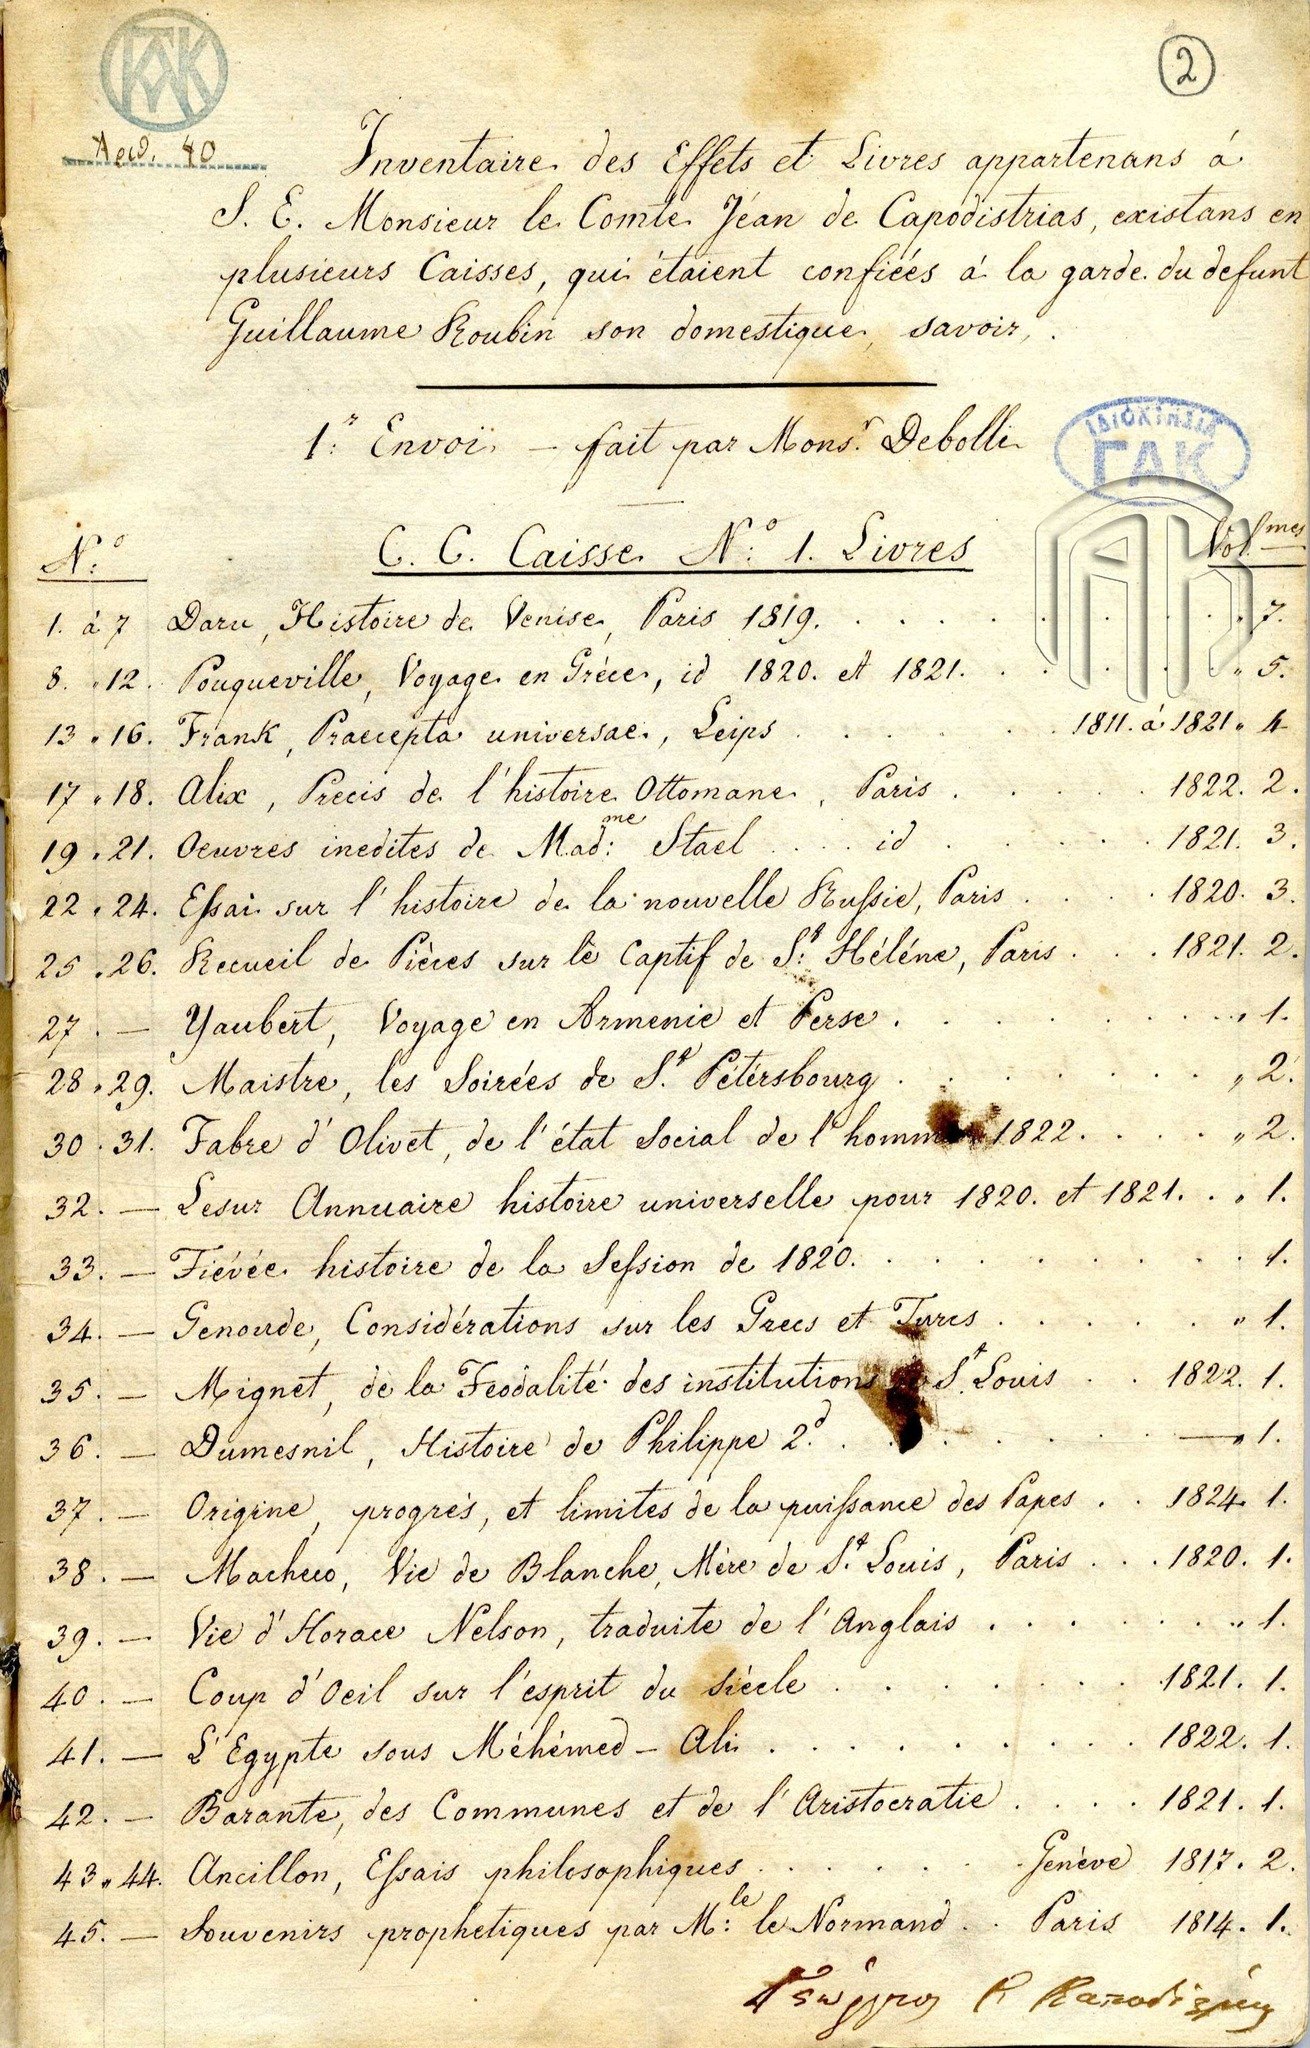 ΚΑΚ
2
Αριθ. 40
Inventaire des Effets et Livres appartenans á
S. E. Monsieur le Comte Jéan de Capodistrias, existans en
plusieurs Caisses, qui étaient confiéés á la garde du defunt
Guillaume Roubin son domestique, savoir,.
1.r Envoï. — fait par Mons.r Debolli
ΙΔΙΟΚΤΗΣΙΑ
ΓΑΚ
N.o C. C. Caisse N.o 1. Livres Vol.mes
1. á 7 Daru, Histoire de Venise, Paris 1819. . . . . . „ 7.
8. „ 12. Pouqueville, Voyage en Gréce, id 1820. et 1821. . . . . „ 5.
13 „ 16. Frank, Praecepta universae, Leips . . . . . 1811. á 1821 „ 4
17 „ 18. Alix, Precis de l'histoire Ottomane, Paris . . . . . 1822. 2.
19 „ 21. Oeuvres inedites de Mad:me Stael . . . . id . . . . . 1821. 3.
22 „ 24. Essai sur l'histoire de la nouvelle Russie, Paris . . . . 1820. 3.
25 „ 26. Recueil de Pièces sur le Captif de S.t Héléne, Paris . . . 1821. 2.
27. — Yaubert, Voyage en Armenie et Perse . . . . . . . „ 1.
28 „ 29. Maistre, les Soirées de S.t Pétérsbourg . . . . . . . „ 2.
30 . 31. Fabre d'Olivet, de l'état social de l'homme 1822. . . . . „ 2.
32. — Lesur Annuaire histoire universelle pour 1820. et 1821. . „ 1.
33. — Fiévée histoire de la Session de 1820. . . . . . . . . 1.
34. — Genoude, Considérations sur les Grecs et Turcs . . . . . . „ 1.
35. — Mignet, de la Feodalité des institutions S.t Louis . . 1822. 1.
36. — Dumesnil, Histoire de Philippe 2.d . . . . . . . — „ 1.
37. — Origine, progrés, et limites de la puissance des Papes . . 1824. 1.
38. — Macheco, Vie de Blanche, Mère de S.t Louis, Paris . . . 1820. 1.
39. — Vie d'Horace Nelson, traduite de l'Anglais . . . . . . „ 1.
40. — Coup d'Oeil sur l'esprit du siécle . . . . . . . 1821. 1.
41. — L'Egypte sous Méhémed - Ali . . . . . . . . . 1822. 1.
42. — Barante, des Communes et de l'Aristocratie . . . . 1821. 1.
43 „ 44. Ancillon, Essais philosophiques . . . . . . Genève 1817. 2.
45. — Souvenirs prophetiques par M:le le Normand . . Paris 1814. 1.